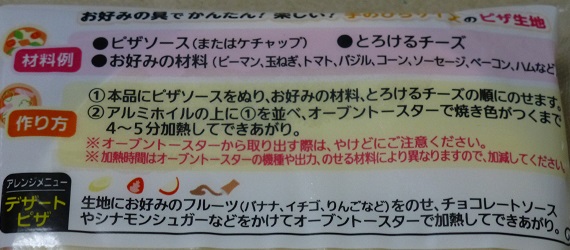 お好みの具でかんたん!楽しい!手のひらサイズのピザ生地
材料例
●ピザソース(またはケチャップ) ●とろけるチーズ
●お好みの材料(ピーマン、玉ねぎ、トマト、バジル、コーン、ソーセージ、ベーコン、ハムなど
作り方
①本品にピザソースをぬり、お好みの材料、とろけるチーズの順にのせます。
②アルミホイルの上に①を並べ、オーブントースターで焼き色がつくまで
4〜5分加熱してできあがり。
※オーブントースターから取り出す際は、やけどにご注意ください。
※加熱時間はオーブントースターの機種や出力、のせる材料により異なりますので、加減してください。
アレンジメニュー
デザート
ピザ
生地にお好みのフルーツ(バナナ、イチゴ、りんごなど)をのせ、チョコレートソース
やシナモンシュガーなどをかけてオーブントースターで加熱してできあがり。